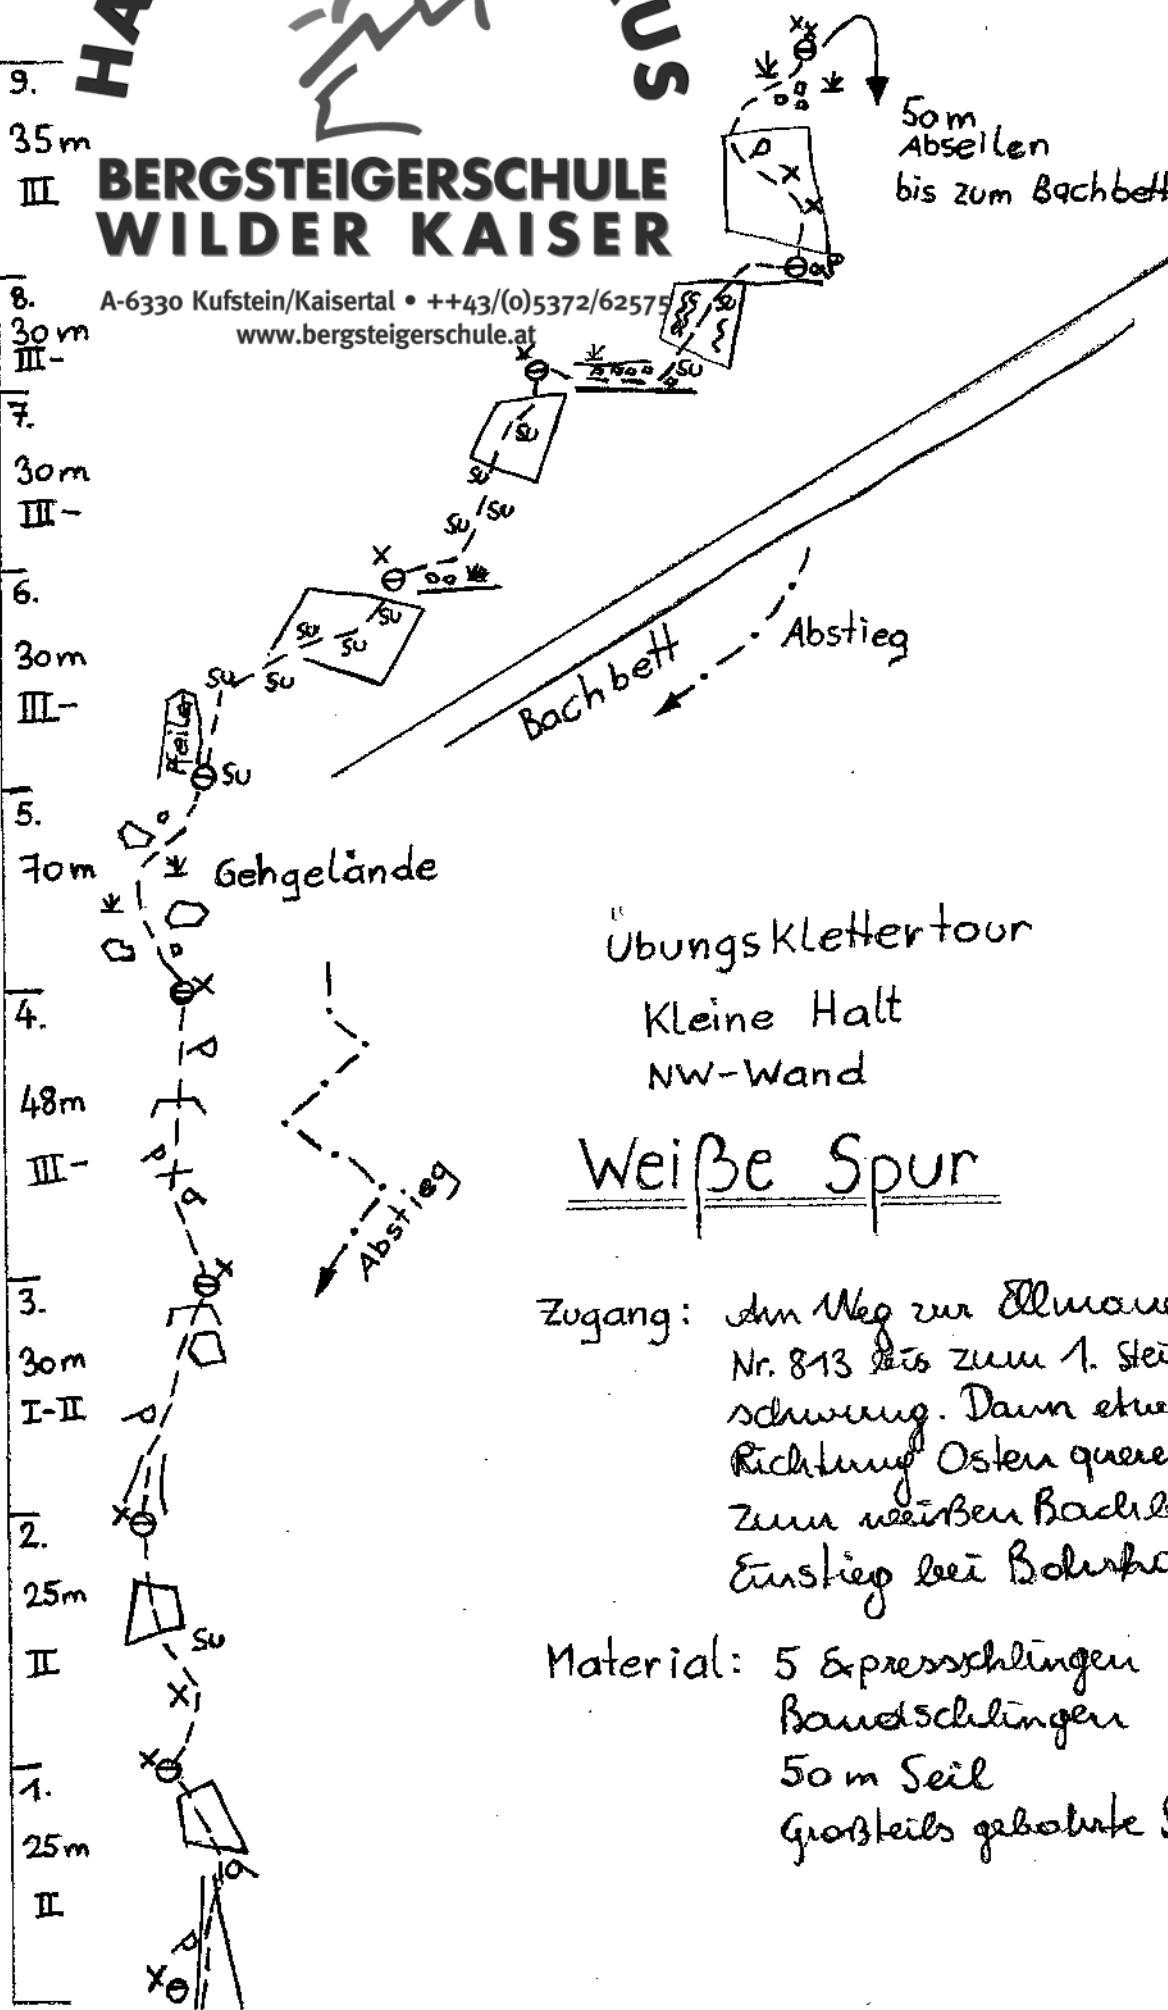 HA
US
BERGSTEIGERSCHULE
WILDER KAISER
A-6330 Kufstein/Kaisertal • ++43/(0)5372/62575
www.bergsteigerschule.at
50m
Abseilen
bis zum Bachbett
9.
35m
III
8.
30m
III-
7.
30m
III-
6.
30m
III-
5.
70m
4.
48m
III-
3.
30m
I-II
2.
25m
II
1.
25m
II
su
su
su
su
su su
su
su
su
su su
Pfeiler
su
Gehgelände
Bachbett
Abstieg
Abstieg
su
Übungsklettertour
Kleine Halt
NW-Wand
Weiße Spur
Zugang: Am Weg zur
Nr. 813 bis zum 1.
schwung. Dann
Richtung Osten
zum weißen
Einstieg bei
Material: 5 Expressschlingen
Bandschlingen
50 m Seil
Großteils gebohrte